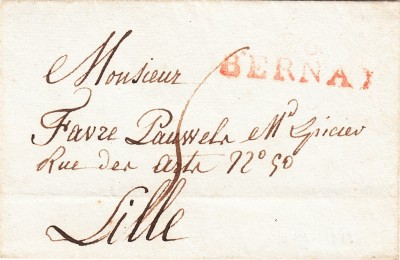 BERNAY
Monsieur
Favre Pauwels Md Epicier
Rue des Arts N° 50
Lille